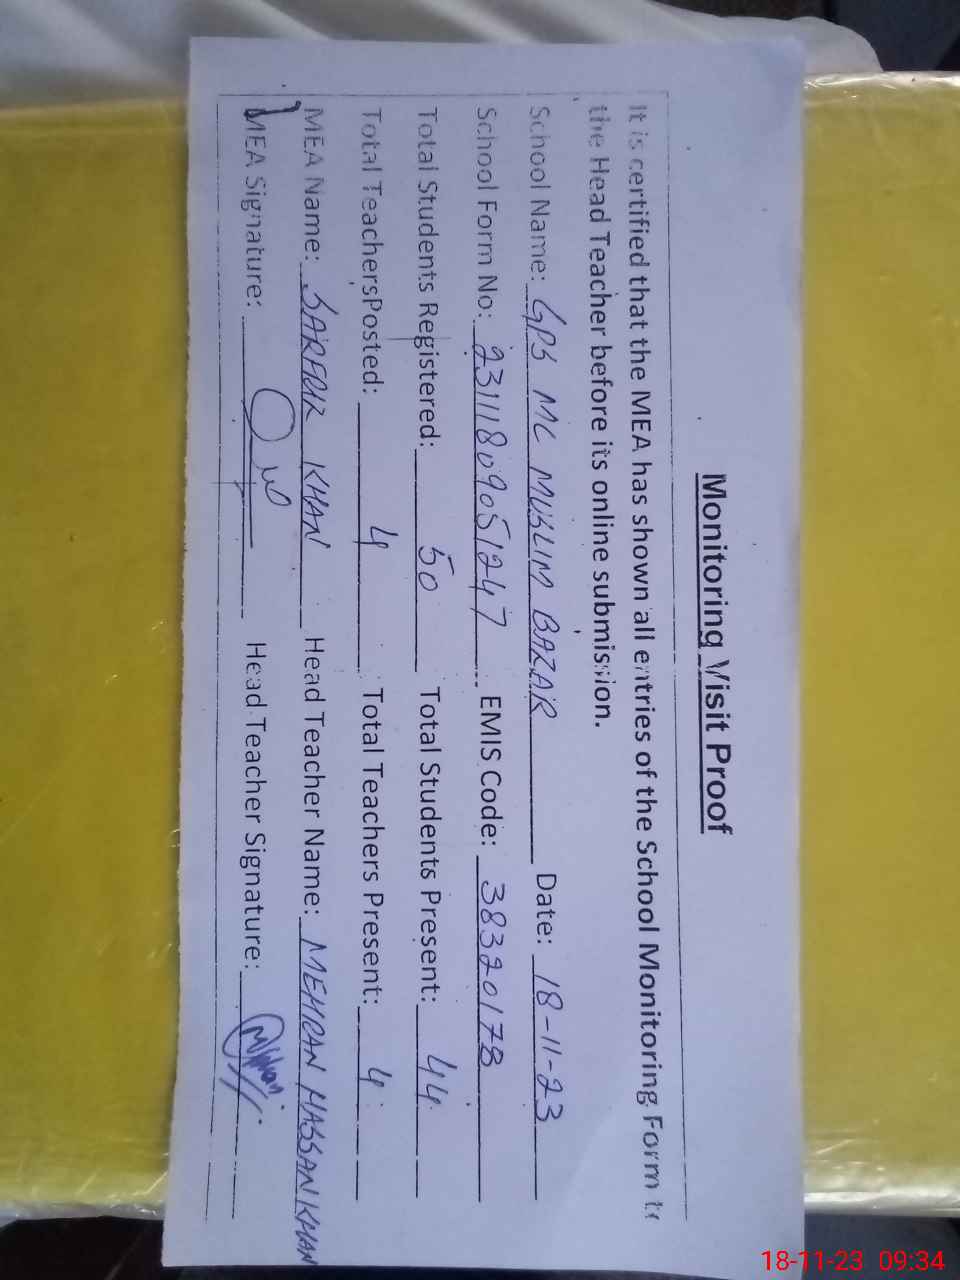 Monitoring Visit Proof
It is certified that the MEA has shown all entries of the School Monitoring Form to
the Head Teacher before its online submission.
School Name: GPS MC MUSLIM BAZAR Date: 18-11-23
School Form No: 23111809051247 EMIS Code: 38320178
Total Students Registered: 50 Total Students Present: 44
Total TeachersPosted: 4 Total Teachers Present: 4
MEA Name: SARFRAZ KHAN Head Teacher Name: MEHRAN HASSAN KHAN
MEA Signature: Head Teacher Signature:
18-11-23 09:34